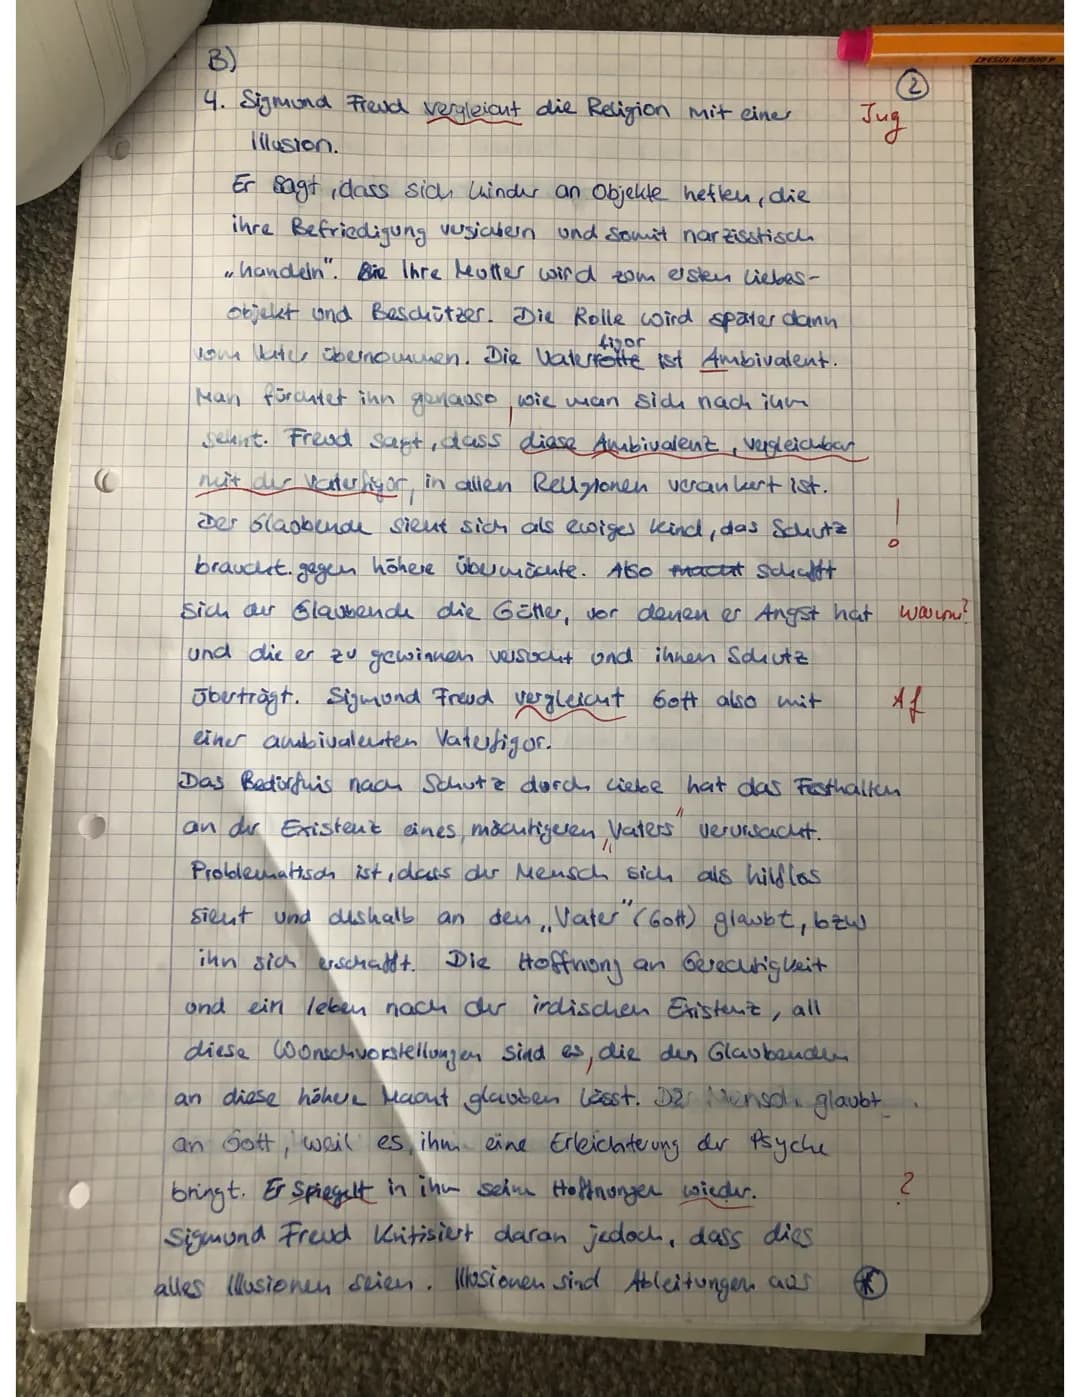 B)
2
4. Sigmund Freud vergleicht die Religion mit einer
Jug
Illusion.
Er sagt, dass sich Kinder an Objekte heften, die
ihre Befriedigung versichern und somit narzisstisch
„handeln". Ihre Mutter wird zum ersten Liebes-
objekt und Beschützer. Die Rolle wird später dann
figur
vom Vater übernommen. Die Vaterrolle ist Ambivalent.
Man fürchtet ihn genauso, wie man sich nach ihm
sehnt. Freud sagt, dass diese Ambivalenz, vergleichbar
mit der Vaterfigur, in allen Religionen verankert ist.
!
Der Glaubende sieht sich als ewiges Kind, das Schutz
braucht gegen höhere Übermächte. Also macht schafft
sich der Glaubende die Götter, vor denen er Angst hat
warum?
und die er zu gewinnen versucht und ihnen Schutz
überträgt. Sigmund Freud vergleicht Gott also mit
Af
einer ambivalenten Vaterfigur.
Das Bedürfnis nach Schutz durch Liebe hat das Festhalten
an der Existenz eines mächtigeren „Vaters" verursacht.
Problematisch ist, dass der Mensch sich als hilflos
sieht und deshalb an den „Vater" (Gott) glaubt, bzw
ihn sich erschafft. Die Hoffnung an Gerechtigkeit
und ein leben nach der irdischen Existenz, all
diese Wunschvorstellungen sind es, die den Glaubenden
an diese höhere Macht glauben lässt. Der Mensch glaubt
an Gott, weil es ihm eine Erleichterung der Psyche
bringt. Er Spiegelt in ihm seine Hoffnungen wieder.
?
Sigmund Freud kritisiert daran jedoch, dass dies
alles Illusionen seien. Illusionen sind Ableitungen aus